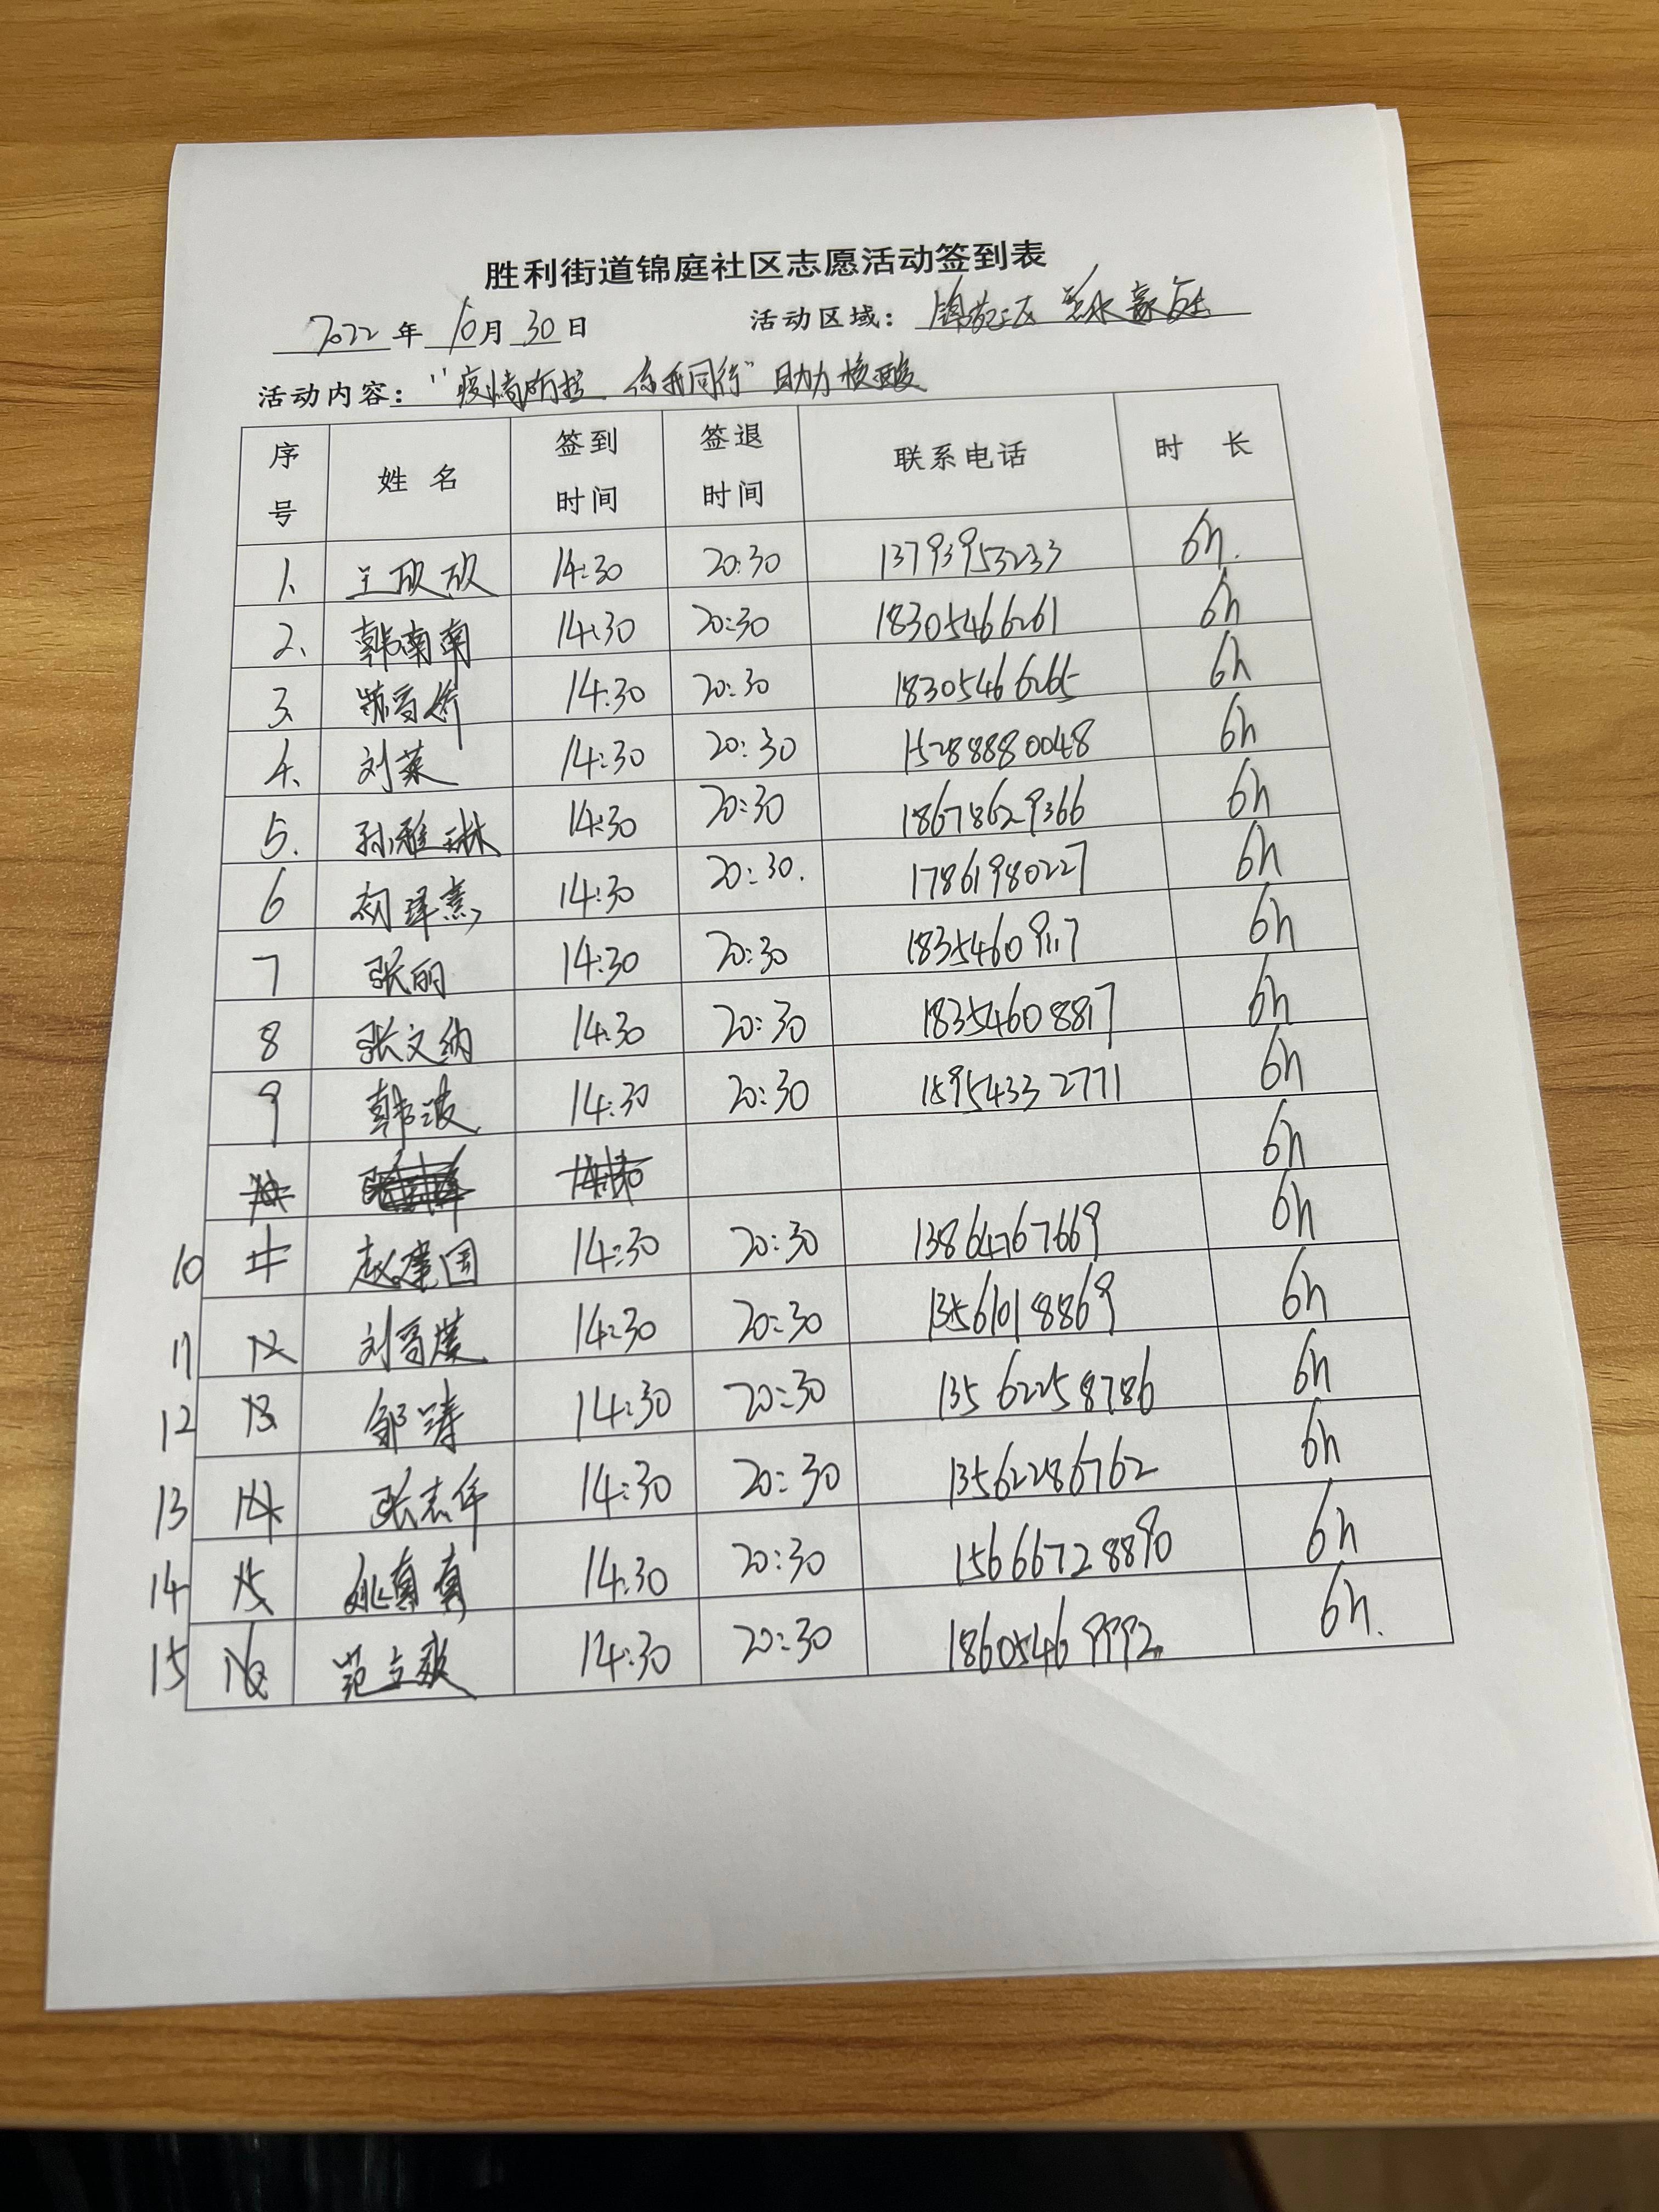 胜利街道锦庭社区志愿活动签到表
2022年10月30日 活动区域:锦苑三区
活动内容:"疫情防控 你我同行"助力核酸
序号 姓名 签到时间 签退时间 联系电话 时长
1. 王欣欣 14:30 20:30 13793953233 6h.
2. 韩南南 14:30 20:30 18305466261 6h
3. 14:30 20:30 18305466265 6h
4. 刘莱 14:30 20:30 15288880048 6h
5. 孙雅琳 14:30 20:30 18678629366 6h
6 14:30 20:30. 17861980227 6h
7 张丽 14:30 20:30 18354609117 6h
8 张文纳 14:30 20:30 18354608817 6h
9 韩波 14:30 20:30 15954332771 6h
6h
10 赵建国 14:30 20:30 13864767669 6h
11 12 14:30 20:30 13561018869 6h
12 13 邹涛 14:30 20:30 13562258786 6h
13 14 张志华 14:30 20:30 13562286762 6h
14 15 姚真真 14:30 20:30 15666728890 6h
15 16 范立 14:30 20:30 18605469992 6h.